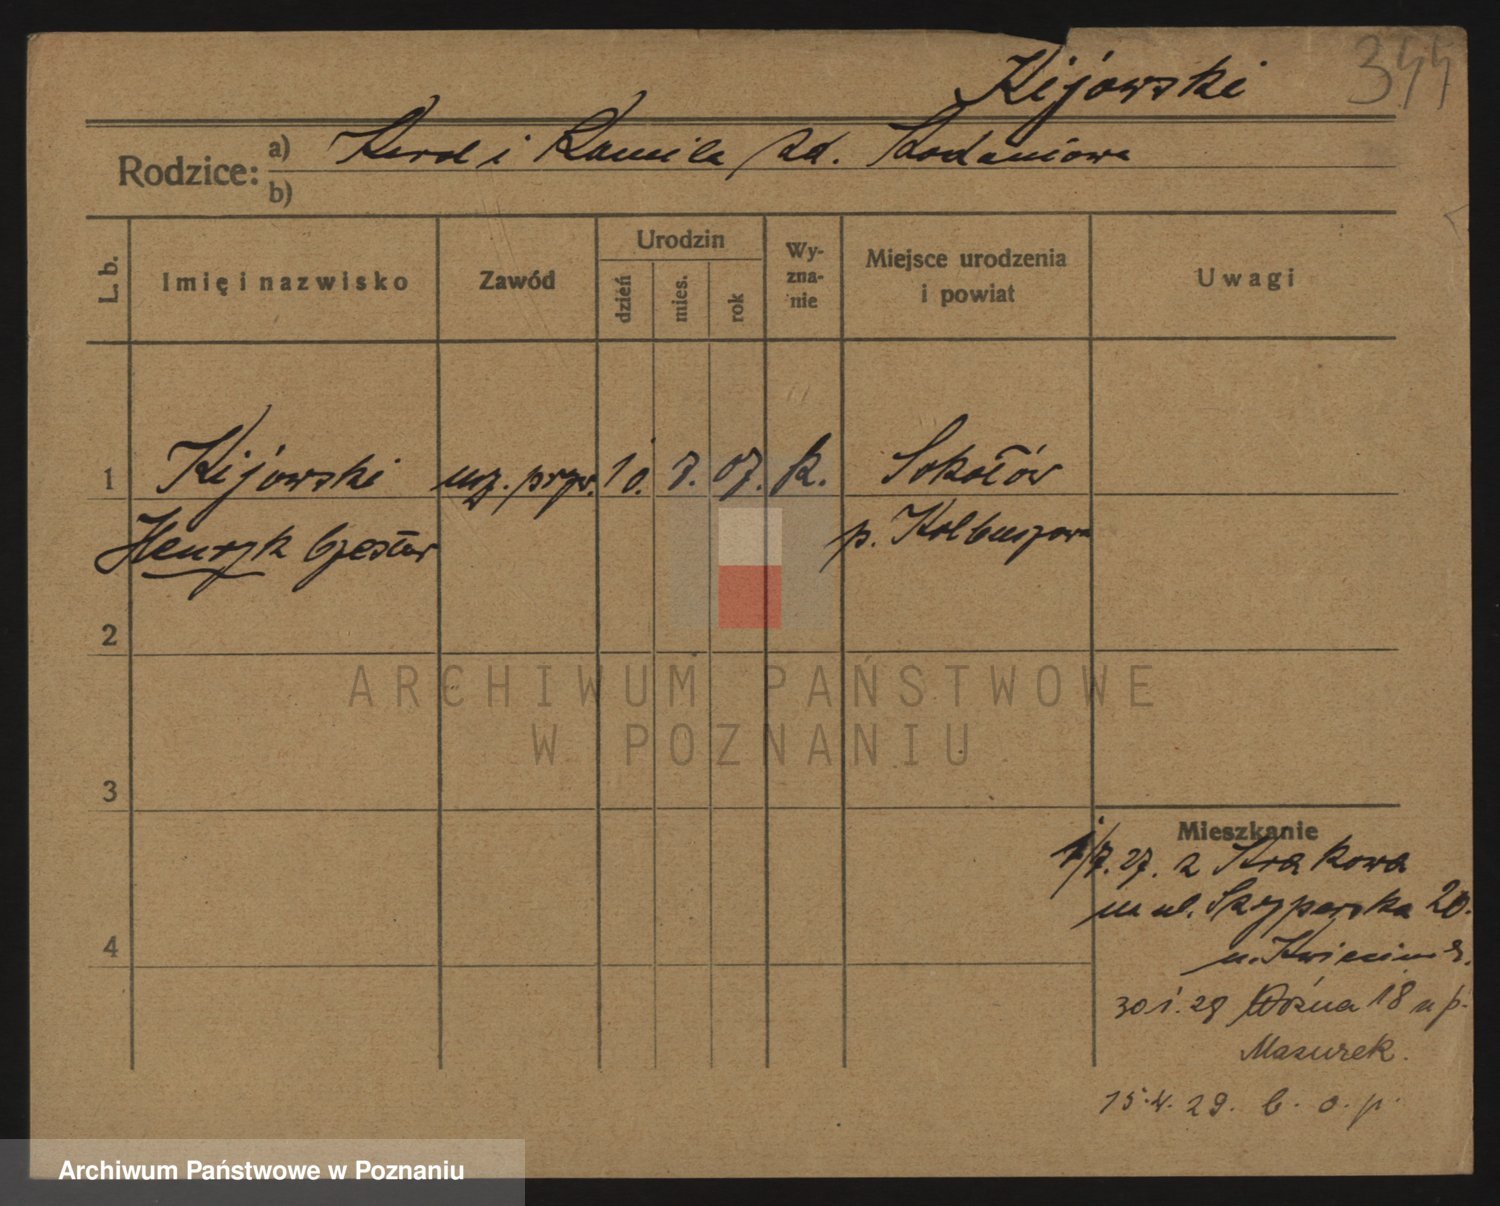 Kijowski 344
Rodzice: a) Karol i Kamila zd.
b)
L. b. Imię i nazwisko Zawód Urodzin dzień mies. rok Wyznanie Miejsce urodzenia i powiat Uwagi
1 Kijowski urz. pryw. 10. 7. 07. k. Sokołów
Henryk Czesław p. Kolbuszowa
2
3
4
Mieszkanie
1/7. 27. z Krakowa
na ul. Skryta 20.
30 1. 28 Woźna 18 u p.
Mazurek.
15.4.29. b. o. p.
ARCHIWUM PAŃSTWOWE
W POZNANIU
Archiwum Państwowe w Poznaniu